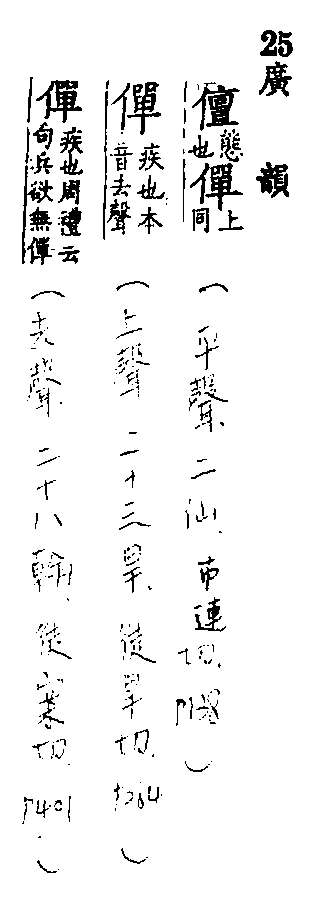 25廣韻
儃態也僤上同(平聲.二仙.市連切.P138)
僤疾也本音去聲(上聲.二十三旱.徒旱切.P284)
僤疾也周禮云句兵欲無僤(去聲.二十八翰.徒案切.P401.)